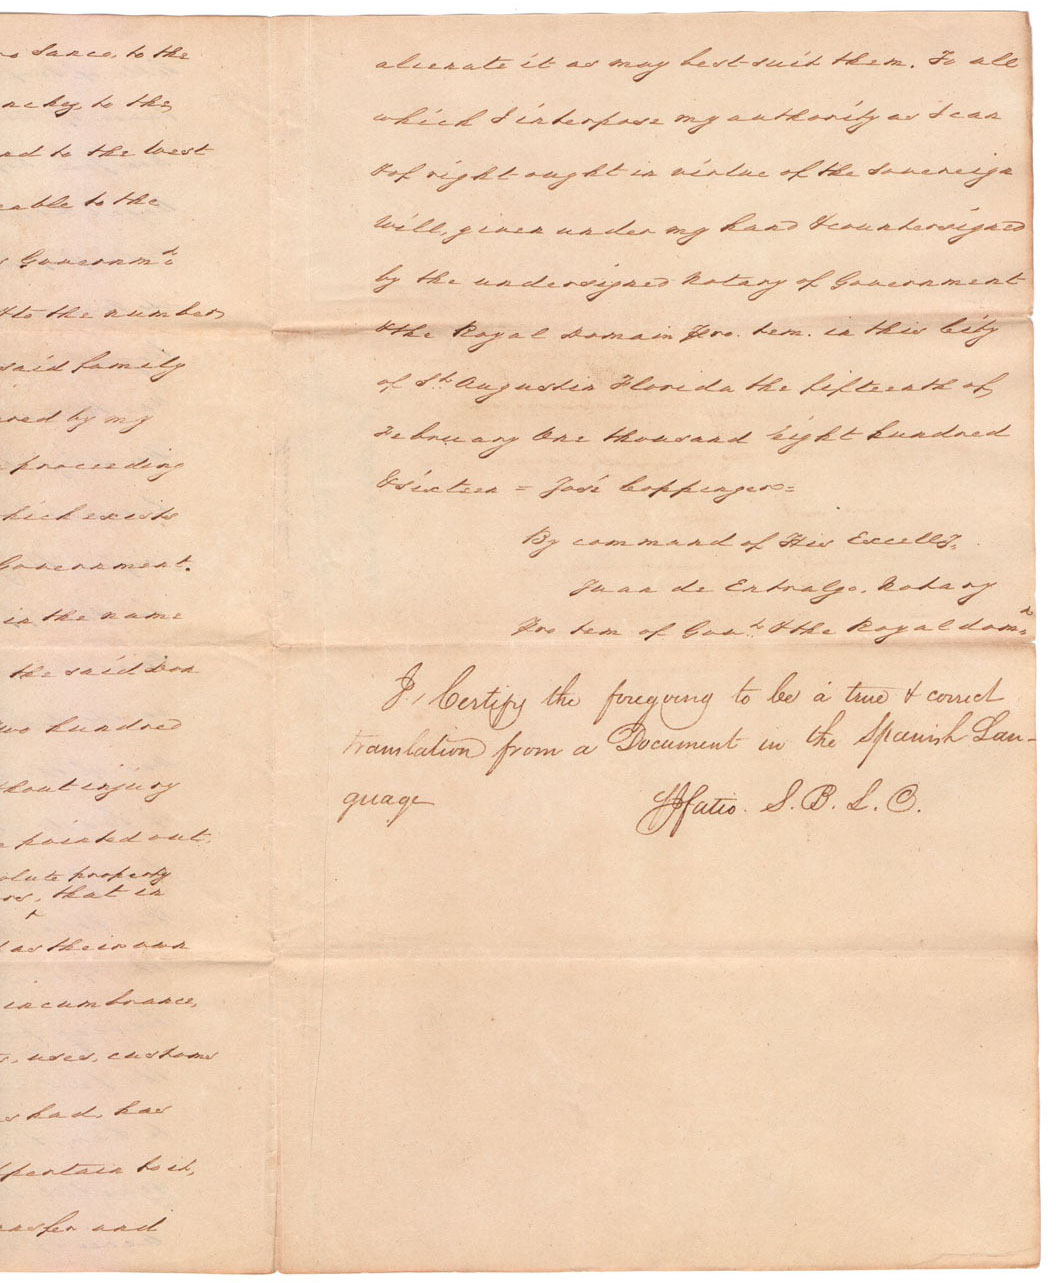 Sance, to the
to the
and to the West
to the
Governmt
& to the number
said family
by my
proceeding
which exists
Government.
in the name
the said Don
two hundred
without injury
pointed out.
property
that in
as their own
incumbrance,
uses, customs
had, has
to it,
and
alienate it as may best suit them. To all
which I interpose my authority as I can
& of right ought in virtue of the Sovereign
Will, given under my hand & countersigned
by the undersigned Notary of Government
& the Royal Domain Pro. tem. in this City
of St. Augustin Florida the fifteenth of
February One thousand Eight hundred
& sixteen = José Coppinger =
By command of His Excelly.
Juan de Entralgo, Notary
Pro tem of Govt. & the Royal domn
I, Certify the foregoing to be a true & correct
translation from a Document in the Spanish Lan-
guage
Fatio. S. B. L. C.